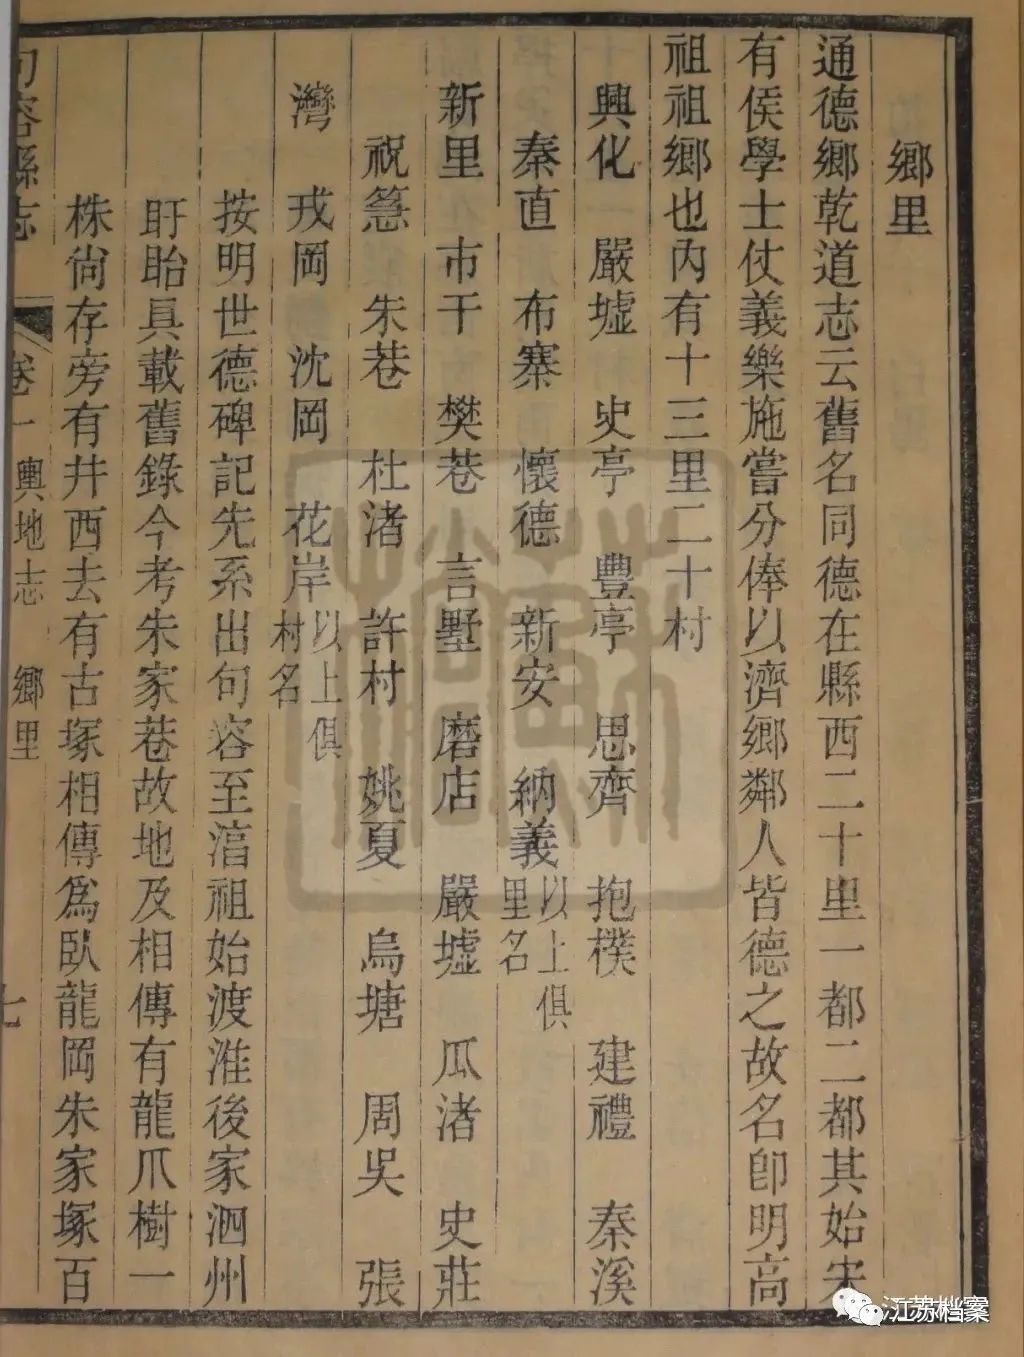 鄉里
通德鄉乾道志云舊名同德在縣西二十里一都二都其始宋
有侯學士仗義樂施嘗分俸以濟鄉鄰人皆德之故名卽明高
祖祖鄉也內有十三里二十村
興化 嚴墟 史亭 豐亭 思齊 抱樸 建禮 秦溪
秦直 布寨 懷德 新安 納義 以上俱里名
新里 市干 樊巷 言墅 磨店 嚴墟 瓜渚 史莊
祝 朱巷 杜渚 許村 姚夏 烏塘 周吳 張
灣 戎岡 沈岡 花岸 以上俱村名
按明世德碑記先系出句容至湻祖始渡淮後家泗州
盱眙具載舊錄今考朱家巷故地及相傳有龍爪樹一
株尙存旁有井西去有古塚相傳爲臥龍岡朱家塚百
句容縣志 卷一 輿地志 鄉里 七
江苏档案